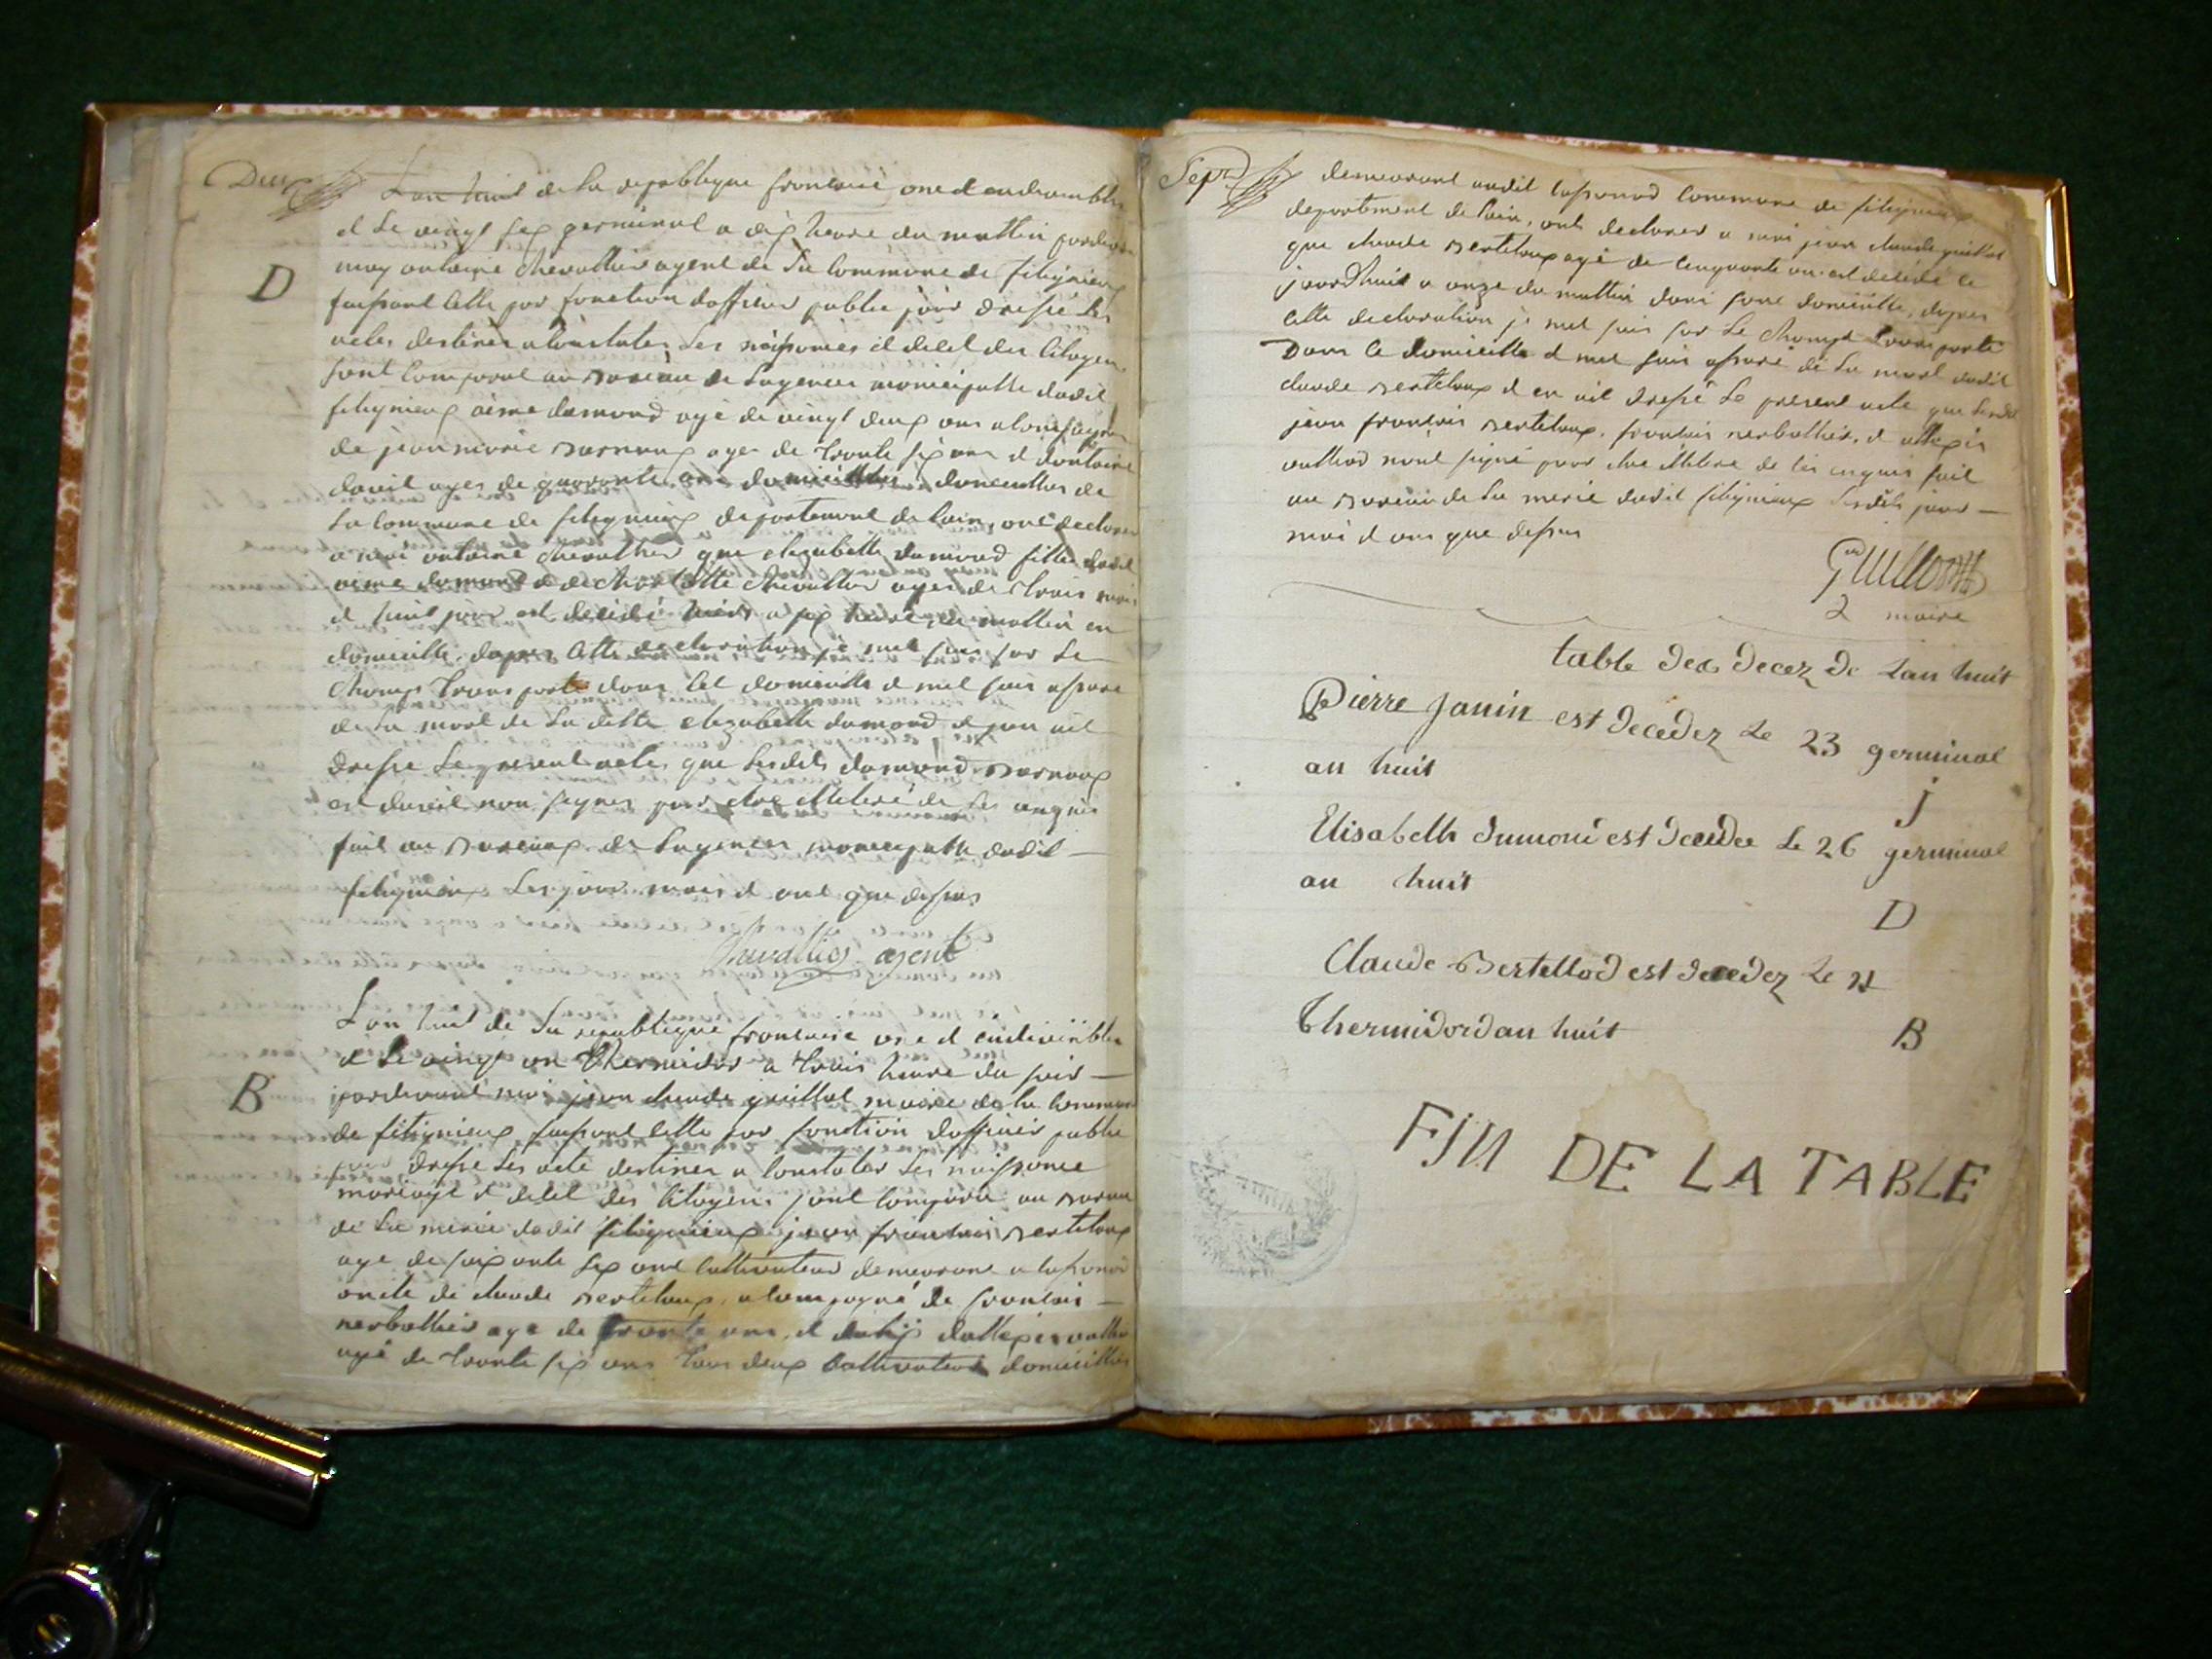 Deux
L'an huit de la republique francaise une et endivisible
et le vingt six germinal a dix heure du mattin pardevan
moy antoine chevallier agent de la commune de fitignieux
D
faisant cette par fonction dofficier public pour dressé les
actes destinés a constater les naissances et decet des citoyens
sont comparut au bureau de lagence municipalle dudit
fitignieux aimé dumond agé de vingt deux ans acompagné
de jean marie barnoux agés de trente six ans et dantoine
agés de quarante ans domicilliés
la commune de fitignieux departement de lain, ont declarer
a moi antoine chevallier que elizabette dumond fille dudit
aimé dumond et de charlotte chevallier agés de trois mois
et huit jour est decidé hiers a six heure du mattin en
domicille, dapres cette declaration je met suis sur le
champs transporté dans cet domicille et met suis assuré
de la mort de la ditte elizabette dumond et jen ait
dressé le present acte que lesdits dumond barnoux
et non signés pour etre illitiré de ces enquis
fait au bureaux de lagence municipalle dudit
fitignieux les jour mois et ant que dessus
chevallier agent
L'an huit de la republique francaise une et endivisible
et le vingt un thermidor a trois heure du soir
B
pardevant moi jean claude guillot maire de la commune
de fitignieux faisant cette par fonction dofficier public
pour dressé les acte destinés a constater les naissance
mariage et decet des citoyens sont comparu au bureau
de la merie dudit fitignieux jean francois berteloux
age de soixante six ans cultivateur demeurant a
oncle de claude berteloux, acompagné de francois
nerbollier age de trente ans, et
agé de trente six ans tous deux cultivateur domicilliés
Sept
demeurant audit commune de fitignieux
departement de lain, ont declarer a moi jean claude guillot
que claude berteloux agé de cinquante un est decidé ce
jourdhuit a onze du mattin dans sont domicille, dapres
cette declaration je met suis sur le champt transporté
Dans ce domicille et met suis assuré de la mort dudit
claude berteloux et en ait dressé le present acte que lesdits
jean francois berteloux, francois nerbollier, et allexis
nont signé pour etre illitiré de ces enquis fait
au bureau de la merie dudit fitignieux lesdits jour
mois et ans que dessus
Guillot
maire
table des decez de Lan huit
Pierre Janin est decedez Le 23 germinal
an huit
j
Elisabeth dumont est decedee Le 26 germinal
an huit
D
Claude Bertellod est decedez Le 21
Thermidord an huit
B
FIN DE LA TABLE